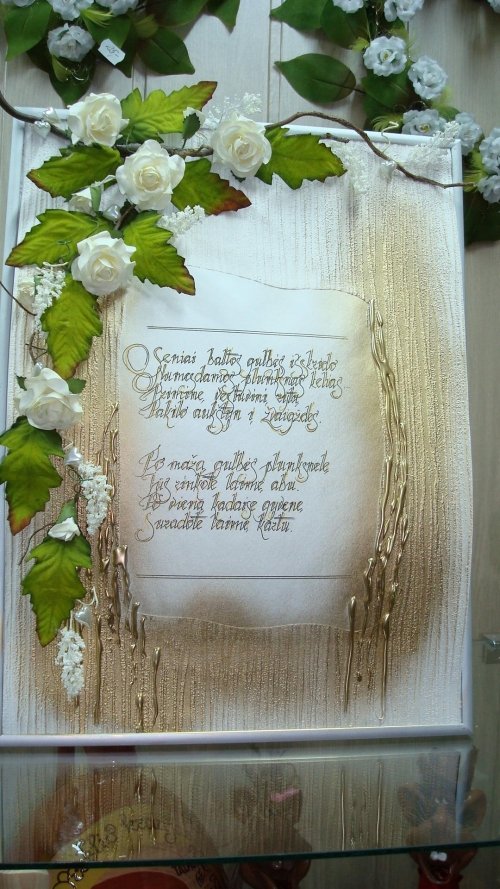 O Seniai baltos gulbės išskrido
Numesdamos plunksnas kelias
Pakilo aukštyn į žvaigždes.
Po mažą gulbės plunksnelę
Jūs rinkote laimę abu.
Po vieną kadaise gyvenę
Suradote laimę kartu.